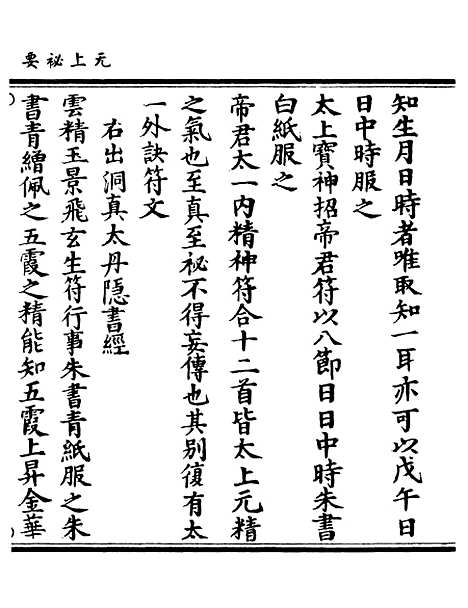 元上祕要
知生月日時者唯取知一耳亦可以戊午日
日中時服之
太上寶神招帝君符以八節日日中時朱書
白紙服之
帝君太一内精神符合十二首皆太上元精
之氣也至真至祕不得妄傳也其别復有太
一外訣符文
右出洞真太丹隱書經
雲精玉景飛玄生符行事朱書青紙服之朱
書青繒佩之五霞之精能知五霞上昇金華